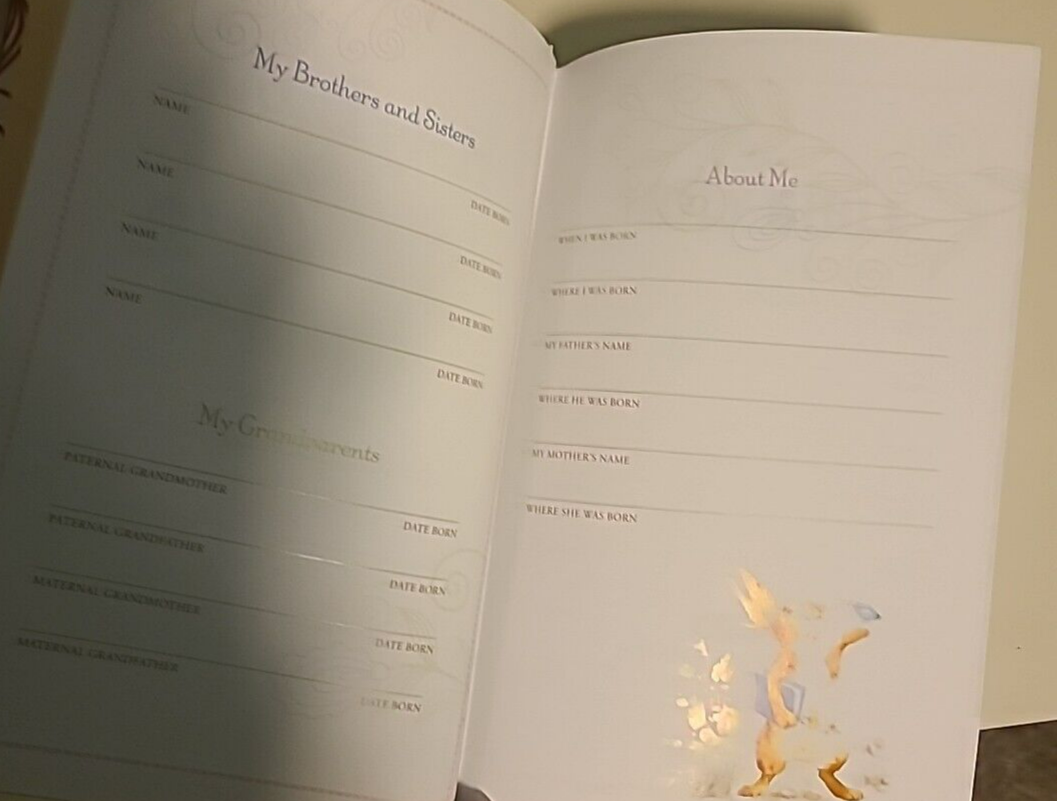 My Brothers and Sisters
NAME
DATE BORN
NAME
DATE BORN
NAME
DATE BORN
NAME
DATE BORN
My Grandparents
PATERNAL GRANDMOTHER
DATE BORN
PATERNAL GRANDFATHER
DATE BORN
MATERNAL GRANDMOTHER
DATE BORN
MATERNAL GRANDFATHER
DATE BORN
About Me
WHEN I WAS BORN
WHERE I WAS BORN
MY FATHER'S NAME
WHERE HE WAS BORN
MY MOTHER'S NAME
WHERE SHE WAS BORN